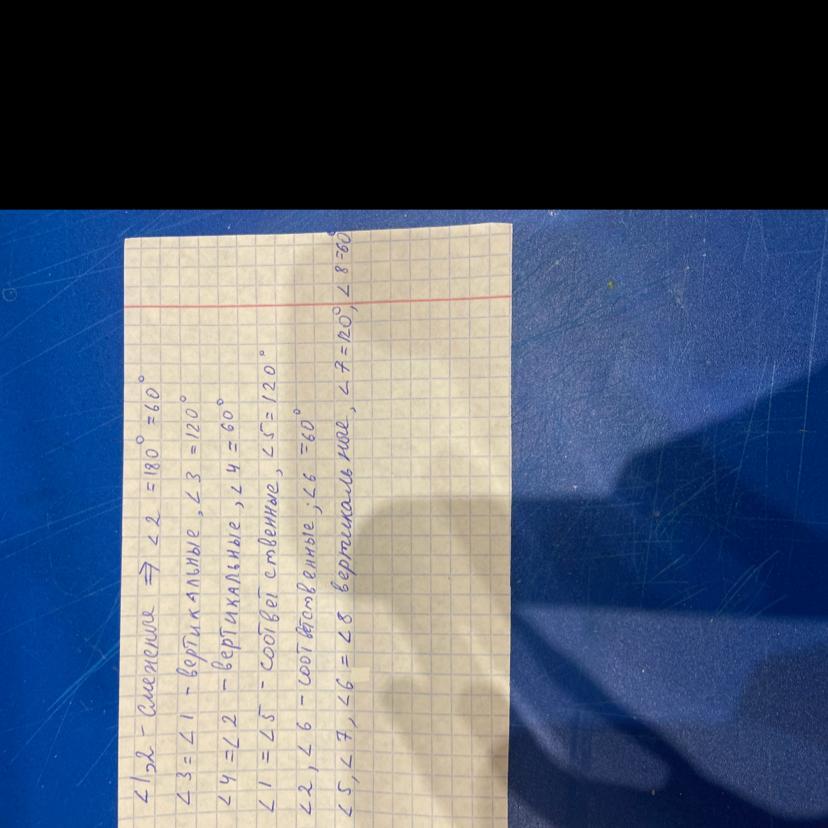 ∠1,2 - смежные ⇒ ∠2 = 180° = 60°
∠3 = ∠1 - вертикальные, ∠3 = 120°
∠4 = ∠2 - вертикальные, ∠4 = 60°
∠1 = ∠5 - соответственные, ∠5 = 120°
∠2, ∠6 - соответственные; ∠6 = 60°
∠5, ∠7, ∠6 = ∠8 вертикальные, ∠7 = 120°, ∠8 = 60°